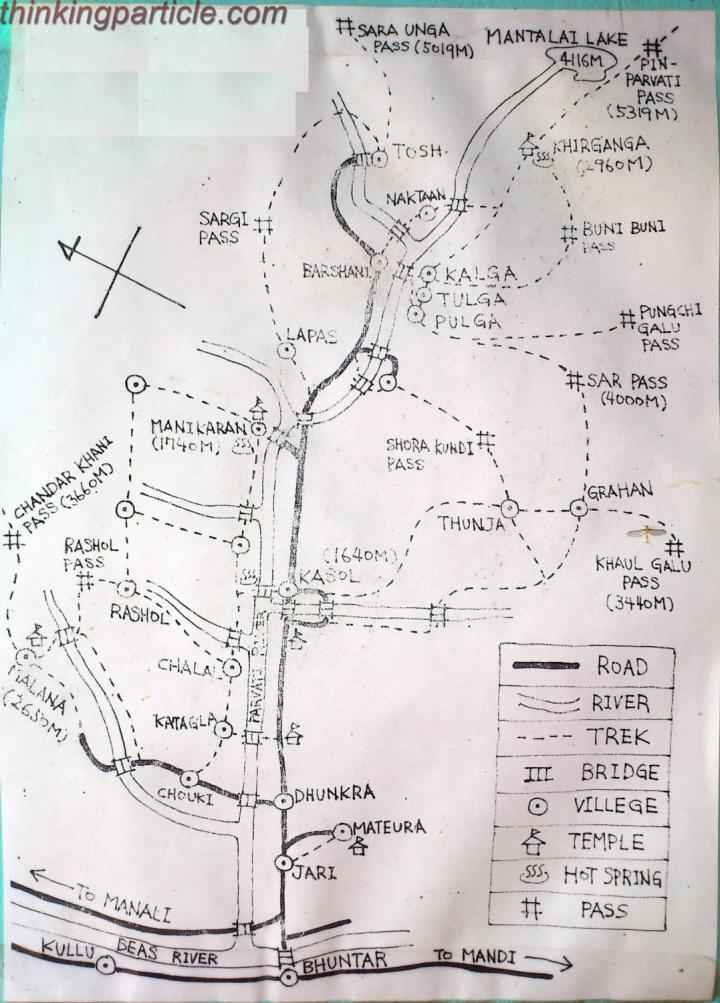 thinkingparticle.com
SARA UNGA
PASS (5019M)
MANTALAI LAKE
4116M
PIN-
PARVATI
PASS
(5319M)
TOSH
KHIRGANGA
(2960M)
NAKTAAN
SARGI
PASS
BUNI BUNI
PASS
BARSHANI
KALGA
TULGA
PULGA
PUNGCHI
GALU
PASS
LAPAS
SAR PASS
(4000M)
MANIKARAN
(1740M)
SHORA KUNDI
PASS
CHANDAR KHANI
PASS (3660M)
GRAHAN
THUNJA
RASHOL
PASS
(1640M)
KASOL
KHAUL GALU
PASS
(3440M)
RASHOL
CHALAL
MALANA
(2650M)
PARVATI RIVER
KATAGLA
ROAD
RIVER
TREK
BRIDGE
VILLEGE
TEMPLE
HOT SPRING
PASS
CHOUKI
DHUNKRA
MATEURA
JARI
TO MANALI
KULLU
BEAS RIVER
BHUNTAR
TO MANDI